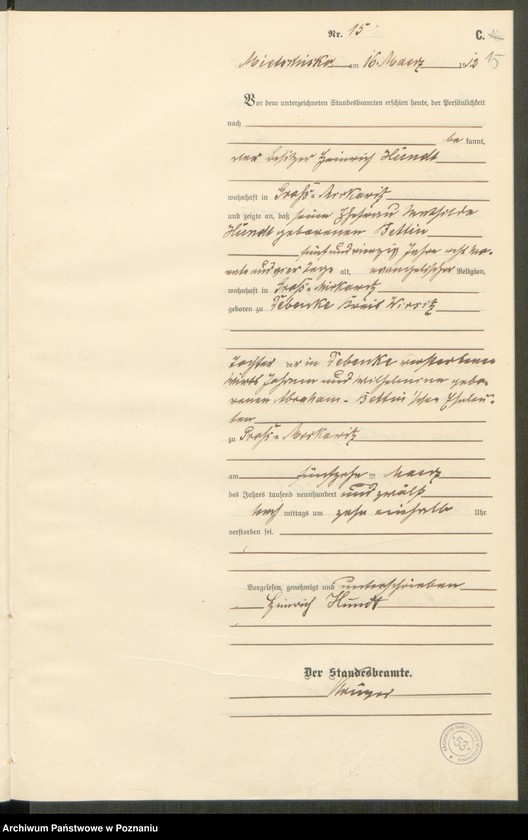 Nr. 15
C.
15
am 16 Maerz 1912
Vor dem unterzeichneten Standesbeamten erschien heute, der Persönlichkeit
nach
be kannt,
der Besitzer Heinrich Hundt
wohnhaft in Groß-
und zeigte an, daß seine Ehefrau Mathilde
Hundt geborenen Bettin
fünfundvierzig Jahre acht Mo-
nate und vier Tage alt, evangelischer Religion,
wohnhaft in Groß-
geboren zu Debenke Kreis Wirsitz
Tochter der in Debenke verstorbenen
Wirts Johann und Wilhelmine gebo-
renen Abraham- Bettin'schen Eheleu-
ten
zu Groß-
am fünfzehn ten Maerz
des Jahres tausend neunhundert und zwölf
Nach mittags um zehn einhalb Uhr
verstorben sei.
Vorgelesen, genehmigt und unterschrieben
Heinrich Hundt
Der Standesbeamte.
Krüger
Archiwum Państwowe w Poznaniu